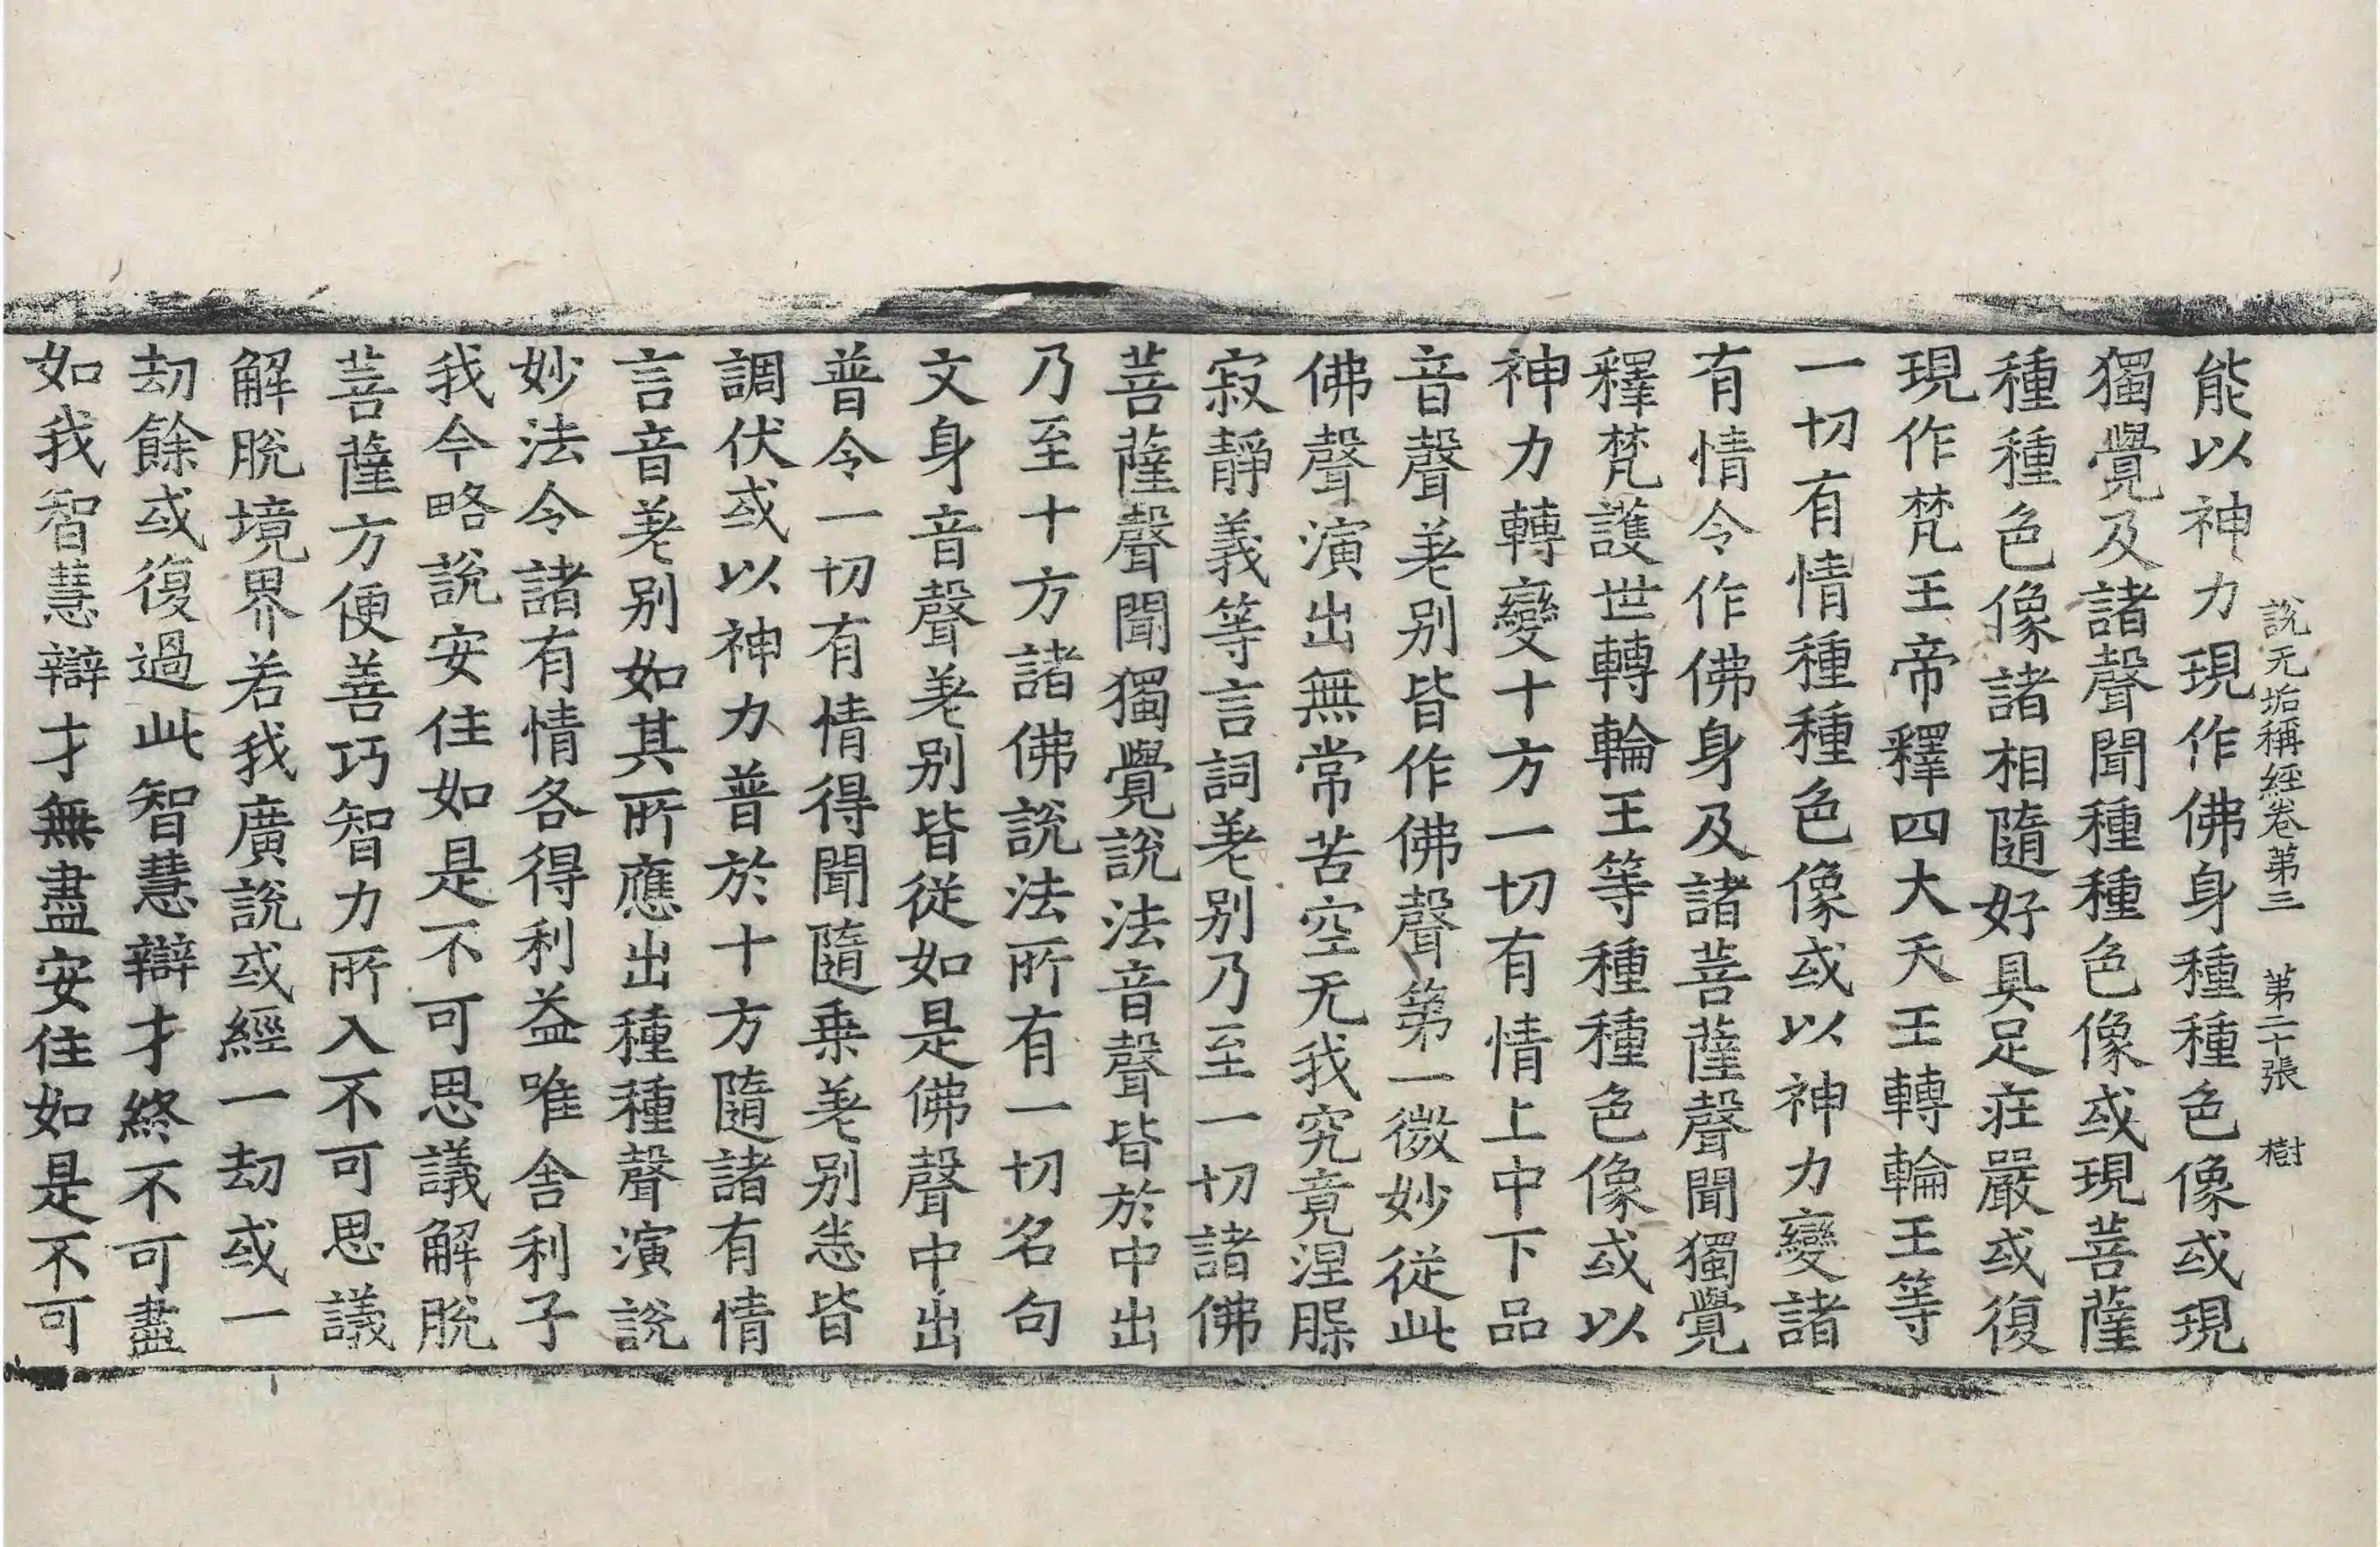 說无垢稱經卷第三　第二十張　樹
能以神力現作佛身種種色像或現
獨覺及諸聲聞種種色像或現菩薩
種種色像諸相隨好具足莊嚴或復
現作梵王帝釋四大天王轉輪王等
一切有情種種色像或以神力變諸
有情令作佛身及諸菩薩聲聞獨覺
釋梵護世轉輪王等種種色像或以
神力轉變十方一切有情上中下品
音聲差別皆作佛聲第一微妙從此
佛聲演出無常苦空无我究竟涅槃
寂靜義等言詞差別乃至一切諸佛
菩薩聲聞獨覺說法音聲皆於中出
乃至十方諸佛說法所有一切名句
文身音聲差別皆從如是佛聲中出
普令一切有情得聞隨乘差別悉皆
調伏或以神力普於十方隨諸有情
言音差別如其所應出種種聲演說
妙法令諸有情各得利益唯舍利子
我今略說安住如是不可思議解脫
菩薩方便善巧智力所入不可思議
解脫境界若我廣說或經一劫或一
劫餘或復過此智慧辯才終不可盡
如我智慧辯才無盡安住如是不可